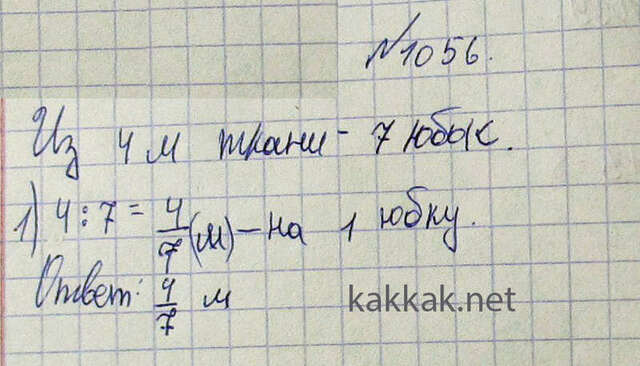 №1056.
Из 4 м ткани - 7 юбык.
1) 4 : 7 = 4/7 (м) - на 1 юбку.
Ответ: 4/7 м
kakkak.net